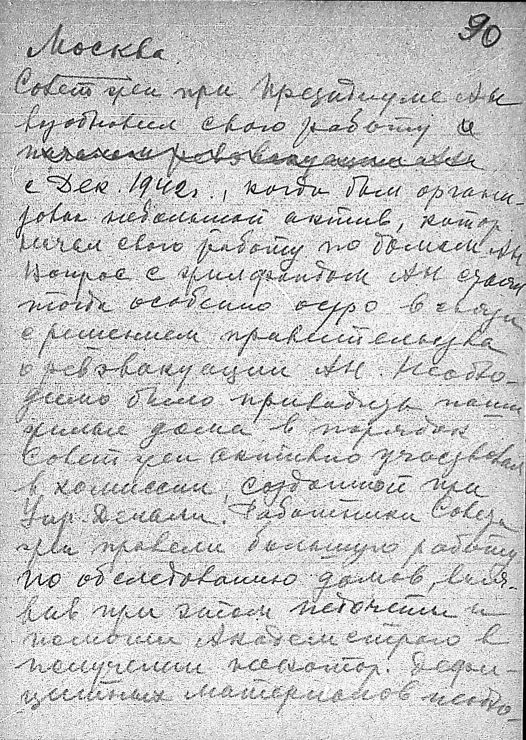 90
Москва.
Совет жен при Президиуме АН
возобновил свою работу и
началом реэвакуации АН
с Дек. 1942г., когда был органи-
зован небольшой актив, котор
начал свою работу по домам АН
Вопрос с жилфондом АН стоял
тогда особенно остро в связи
с решением правительства
о реэвакуации АН. Необхо-
димо было приводить наши
жилые дома в порядок
Совет жен активно участвовал
в комиссии, созданной при
Упр. Делами. Работники Совета
жен провели большую работу
по обследованию домов, выяв-
вив при этом неточести и
помогли Академстрою в
получении некотор. дефи-
цитных материалов необхо-